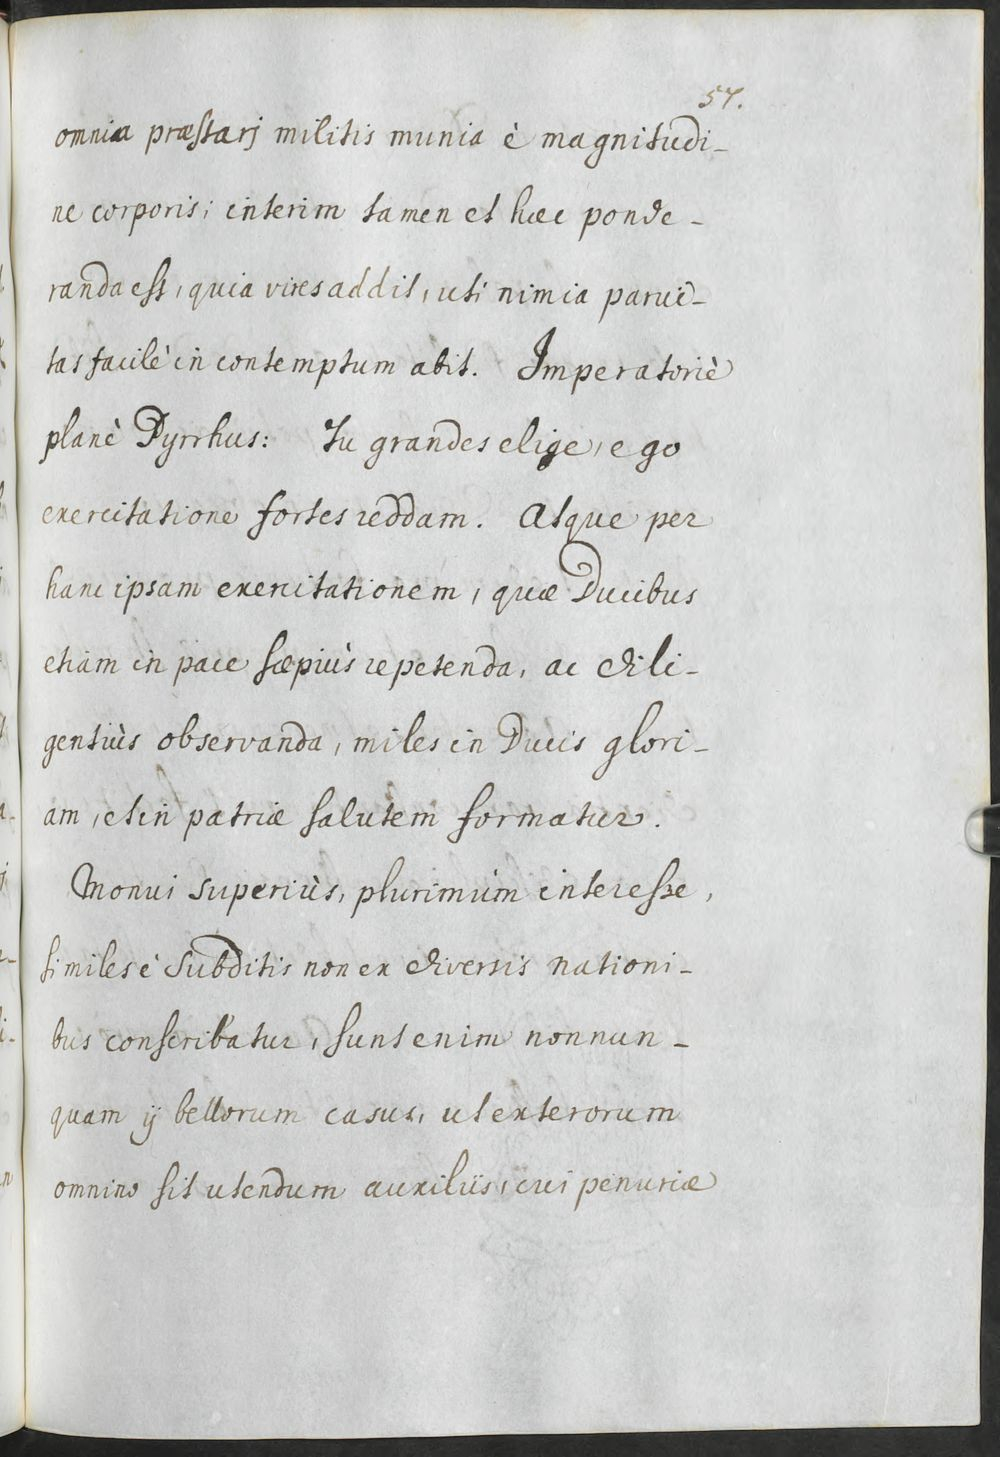 57.
omnia præstarj militis munia è magnitudi-
ne corporis; interim tamen et hæc ponde-
randa est, quia vires addit, uti nimia parui-
tas facilè in contemptum abit. Imperatoriè
planè Pyrrhus: Tu grandes elige, ego
exercitatione fortes reddam. Atque per
hanc ipsam exercitationem, quæ Ducibus
etiam in pace sæpiùs repetenda, ac dili-
gentiùs observanda, miles in Ducis glori-
am, et in patriæ salutem formatur.
Monui superiùs, plurimùm interesse,
si miles è subditis non ex diversis nationi-
bus conscribatur, sunt enim nonnun-
quam ij bellorum casus, ut exterorum
omnino sit utendum auxiliis, cui penuriæ